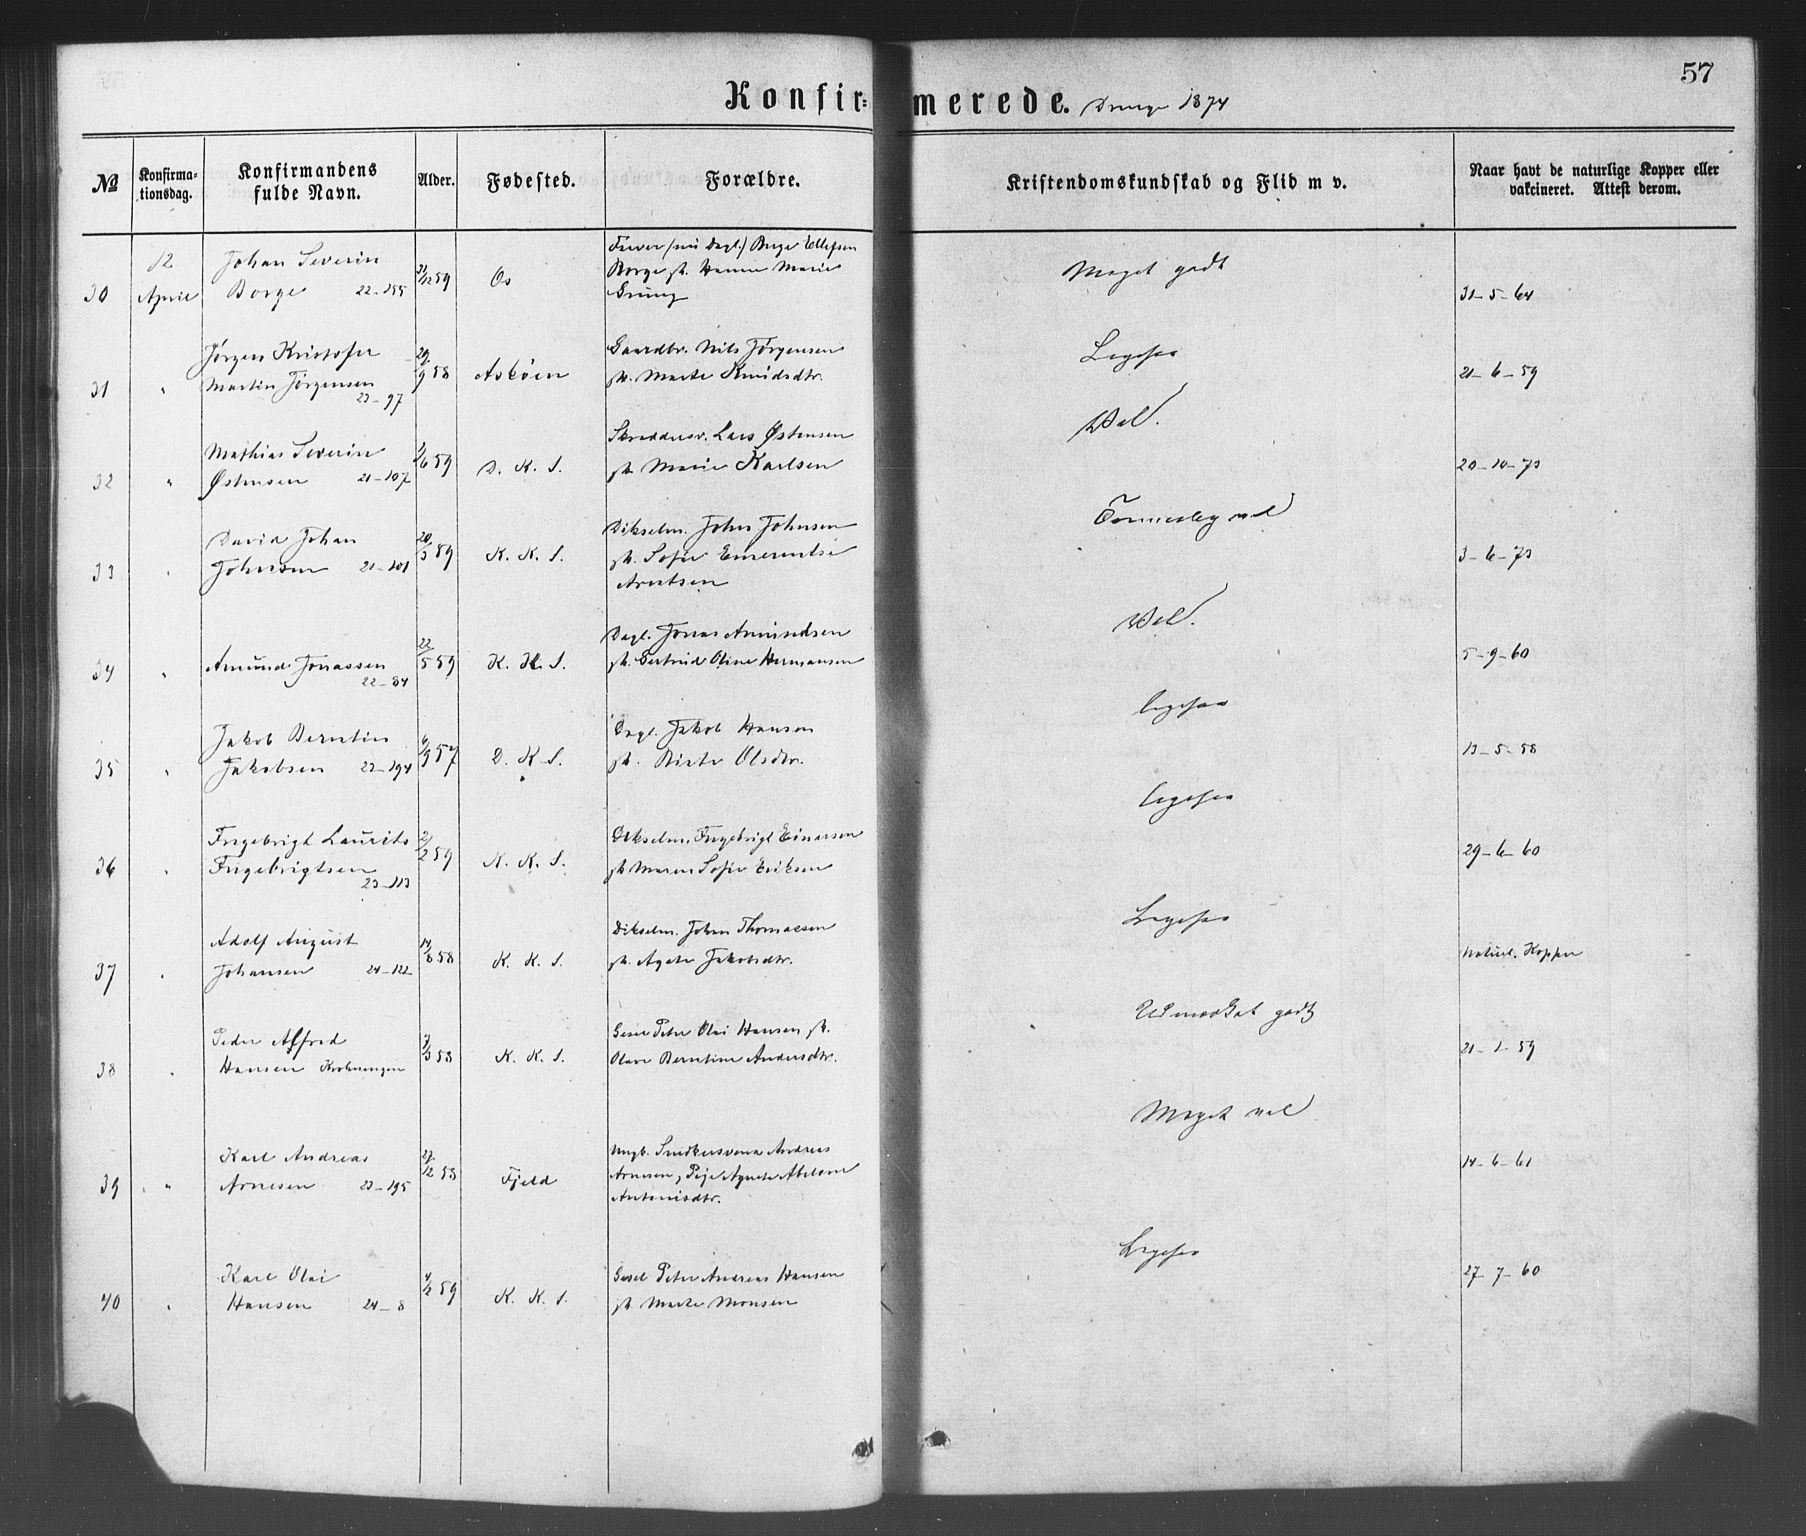 57
Konfirmerede. Drenge 1874
№
Konfirmationsdag.
Konfirmandens fulde Navn.
Alder.
Fødested.
Forældre.
Kristendomskundskab og Flid m v.
Naar havt de naturlige Kopper eller vakcineret. Attest derom.
30 12 April Johan Severin 31/12 59 Os
Borge 22-155
Farver (nu Dagl.) Børge Ellefsen
Borge h. Hanne Marie
Grung
Meget godt 31-5-64
31 " Jørgen Kristofer 29/9 58 Askøen
Martin Jørgensen
23-97
Gaardbr. Nils Jørgensen
h. Marte Knudsdtr.
Ligesaa 21-6-59
32 " Mathias Severin 2/6 59 D. K. S.
Østensen 21-107
Skreddersv. Lars Østensen
h. Marie Karlsen
Vel. 20-10-73
33 " David Johan 20/3 59 K. K. S.
Johnsen 21-101
Dikselm. John Johnsen
h. Sofie Emerentse
Arentsen
Temmelig vel 3-6-73
34 " Amund Jonassen 22/5 59 K. K. S.
22-84
Dagl. Jonas Amundsen
h. Gertrud Oline Hermansen
Vel. 5-9-60
35 " Jakob Berntin 6/9 57 D. K. S.
Jakobsen 23-194
Dagl. Jakob Hansen
h. Birte Olsdtr.
ligesaa 13-5-58
36 " Ingebrigt Laurits 2/2 59 K. K. S.
Ingebrigtsen
23-113
Dikselm. Ingebrigt Einarsen
h. Maren Sofie Eriksen
ligesaa 29-6-60
37 " Adolf August 14/8 58 K. K. S.
Johansen 24-122
Dikselm. Johan Thomassen
h. Agate Jakobsdtr.
Ligesaa Naturl. Kopper
38 " Peder Alfred 7/3 58 K. K. S.
Hansen Krohnengen
Gesel Peter Olai Hansen h.
Olave Berntine Andersdtr.
Udmærket godt 21-1-59
39 " Karl Andreas 27/12 58 Fjeld
Arnesen 23-195
Ungk. Snedkersvend Andreas
Arnesen, Pige Agnete Abelone
Antonisdtr.
Meget vel 14-6-61
40 " Karl Olai 4/2 59 K. K. S.
Hansen 24-8
Gesel Peter Andreas Hansen
h. Marte Monsen
Ligesaa 27-7-60